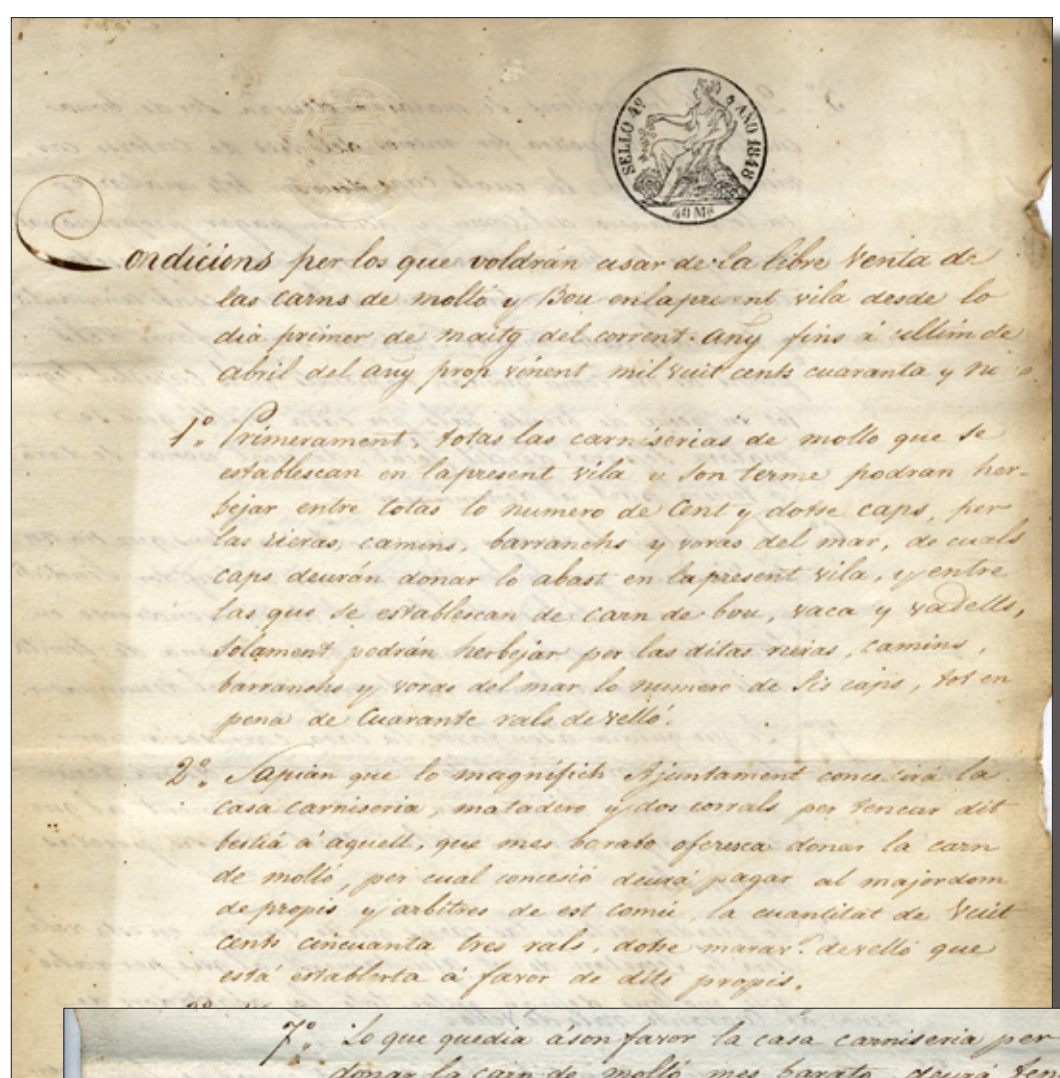 SELLO 4º AÑO 1848
40 Ms
Condicions per los que voldrán usar de la libre venta de
las carns de moltó y Bou en lapresent vila desde lo
dia primer de maitg del corrent any fins á ultim de
abril del any prop vinent mil vuit cents cuaranta y nou
1º Primerament, totas las carniserias de moltó que se
establescan en lapresent vila y son terme podran her-
bejar entre totas lo numero de Cent y dotse caps, per
las rieras, camins, barranchs y voras del mar, de cuals
caps deurán donar lo abast en la present vila, y entre
las que se establescan de carn de bou, vaca y vadells,
solament podrán herbejar per las ditas rieras, camins,
barranchs y voras del mar lo numero de sis caps, tot en
pena de Cuarante rals de velló.
2º Sapian que lo magnifich Ajuntament concedirá la
casa carniseria, matadero y dos corrals per tencar dit
bestiá á aquell, que mes barato oferesca donar la carn
de moltó, per cual concesió deurá pagar al majordom
de propis y arbitres de est comú, la cuantitat de Vuit
cents cincuanta tres rals, dotse marav.s de velló que
está establerta á favor de dits propis.
7º Lo que quedia á son favor la casa carniseria per
donar la carn de moltó mes barato, deurá ten